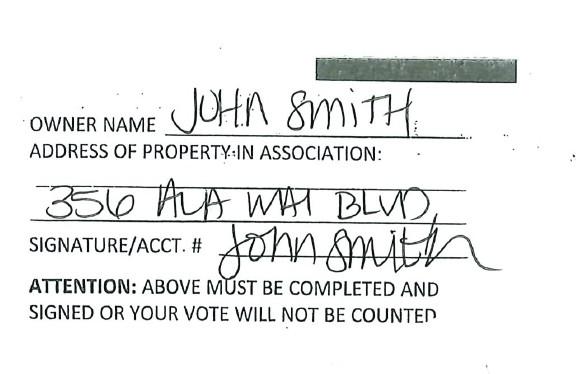 OWNER NAME JOHN SMITH
ADDRESS OF PROPERTY IN ASSOCIATION:
356 ALA WAI BLVD,
SIGNATURE/ACCT. # John Smith
ATTENTION: ABOVE MUST BE COMPLETED AND
SIGNED OR YOUR VOTE WILL NOT BE COUNTED